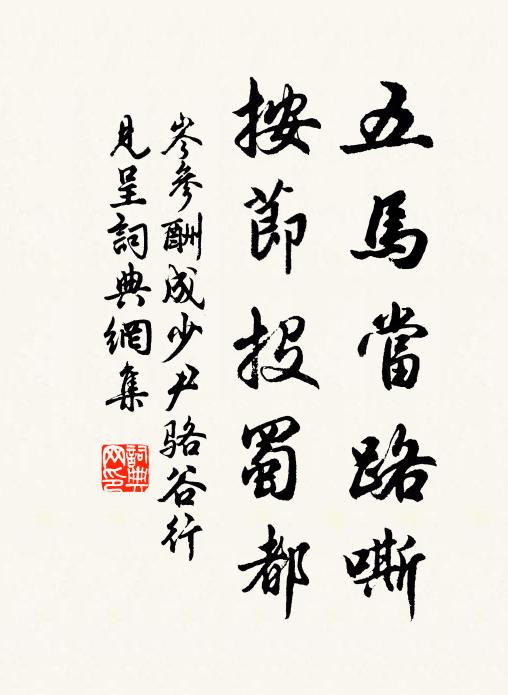 五馬當路嘶
按節投蜀都
岑參酬成少尹骆谷行
見呈詞典網集
詞典
网印